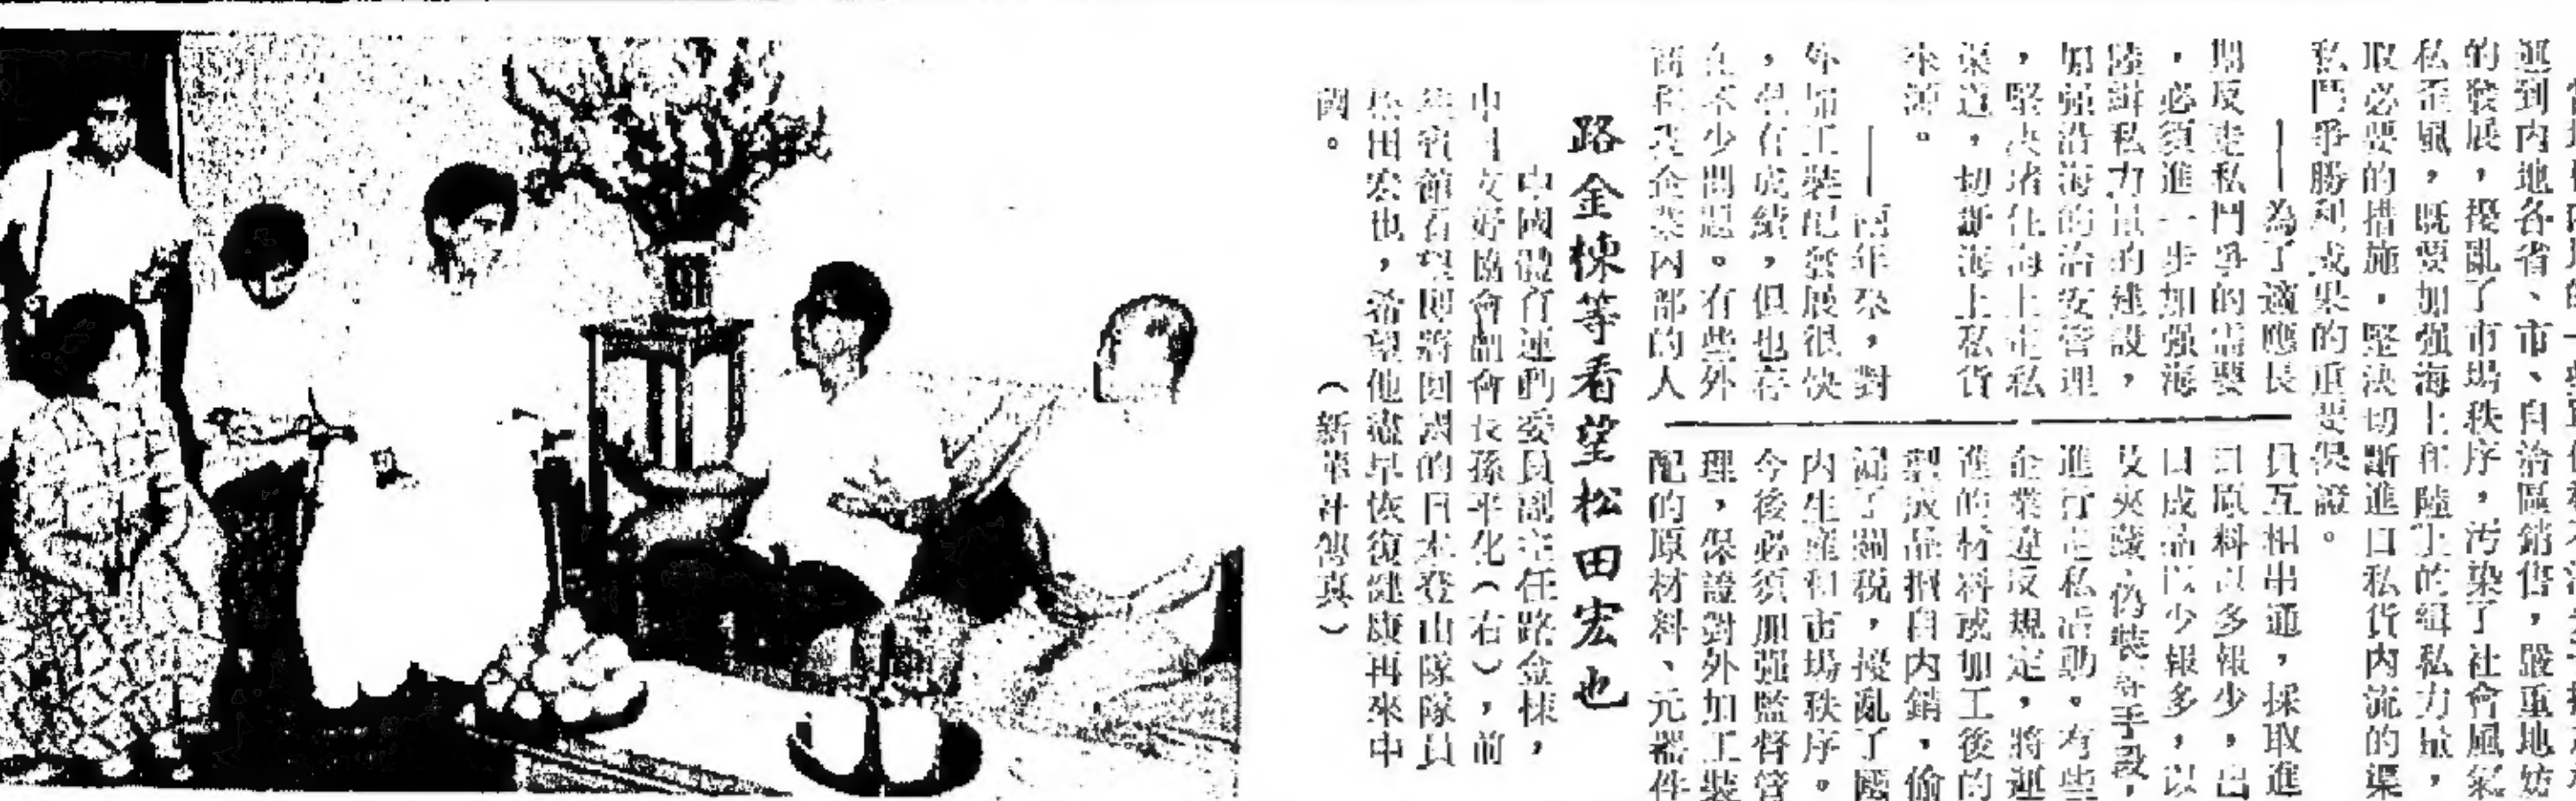 運到内地各省、市、自治區銷售，嚴重地妨
的發展，擾亂了市場秩序，污染了社會風氣
私歪風，既要加强海上和陸上的緝私力量，
取必要的措施，堅決切斷進口私貨内流的渠
私鬥爭勝利成果的重要保證。
——為了適應長
期反走私鬥爭的需要
，必須進一步加强海
陸緝私力量的建設，
加强沿海的治安管理
，堅决堵住海上走私
渠道，切斷海上私貨
來源。
——兩年來，對
外加工裝配發展很快
，很有成績，但也存
在不少問題。有些外
商和我企業内部的人
員互相串通，採取進
口原料以多報少，出
口成品以少報多，以
及夾藏、伪裝等手段，
進行走私活動。有些
企業違反規定，將運
進的材料或加工後的
製成品擅自内銷，偷
漏了關税，擾亂了國
内生產和市場秩序。
今後必須加强監督管
理，保證對外加工裝
配的原材料、元器件
路金棟等看望松田宏也
中國體育運動委員副主任路金棟，
中日友好協會副會長孫平化（右），前
往賓館看望即將回國的日本登山隊隊員
松田宏也，希望他盡早恢復健康再來中
國。
（新華社傳真）